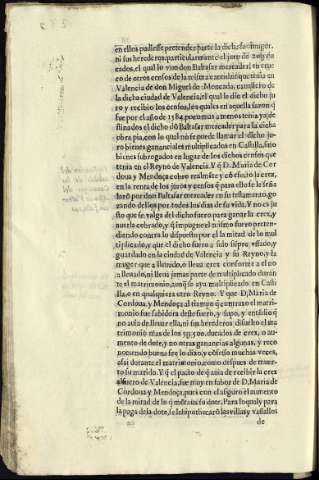 en ellos pudiesse pretender parte la dicha su muger,
ni sus herederos, particularmente el juro de
el qual lo vuo don Baltasar mercader al
co de otros censos de la misma cantidad que tenia en
Valencia de don Miguel de Moncada, cauallero de
la dicha ciudad de Valencia, el qual le dio el dicho ju
ro y recibio los censos, los quales en aquella sazon q̃
fue por el año de 1584. poco mas a menos tenia ya de
stinados el dicho dõ Baltasar mercader para la dicha
obra pia, con lo qual nõ se puede llamar el dicho ju-
ro bienes gananciales multiplicados en Castilla, sino
bienes subrogados en lugar de los dichos censos que
tenia en el Reyno de Valencia. Y q̃ D. Maria de Cor
doua y Mendoça obro realmẽte y cõ efecto la erẽcia,
en la renta de los juros y censos q̃ para ello le seña
lo por don Baltasar mercader en su testamento, go
zando dellos por todos los dias de su vida, Y no es ju
sto que se valga del dicho fuero para ganar la erẽcia, y
auerla cobrado, y q̃ impugne el mismo fuero preten-
diendo contra lo dispuesto por el la mitad de lo mul
tiplicado, y que el dicho fuero a sido siẽpre vsado, y
guardado en la ciudad de Valencia y su Reyno, y la
muger que a lleuado, o lleua erex conforme a el no
a lleuado, ni lleua jamas parte de multiplicado durãn
te el matrimonio, aunq̃ se aya multiplicado en Casti
lla, o en qualquiera otro Reyno. Y que D. Maria de
Cordoua, y Mendoça al tiempo q̃ contraxo el matri-
monio fue sabidora deste fuero, y supo, y entẽdio q̃
no auia de lleuar ella, ni sus herederos disuelto el ma
trimonio mas de los ducados de erex, o au-
mento de dote, y no otras ganancias algunas, y reco
nociendo buena fee lo dixo, y cõfesso muchas vezes,
assi durante el matrimonio, como despues de muer-
to su marido. Y q̃ el pacto de q̃ auia de recibir la erex
a fuero de Valencia, fue muy en fabor de D. Maria de
Cordoua y Mendoça, pues con el assiguro el aumento
de la mitad de lo q̃ mõtaua su dote. Para lo qual, y para
la paga de la dote, se le hipothecarõ las villas y vassallos
de